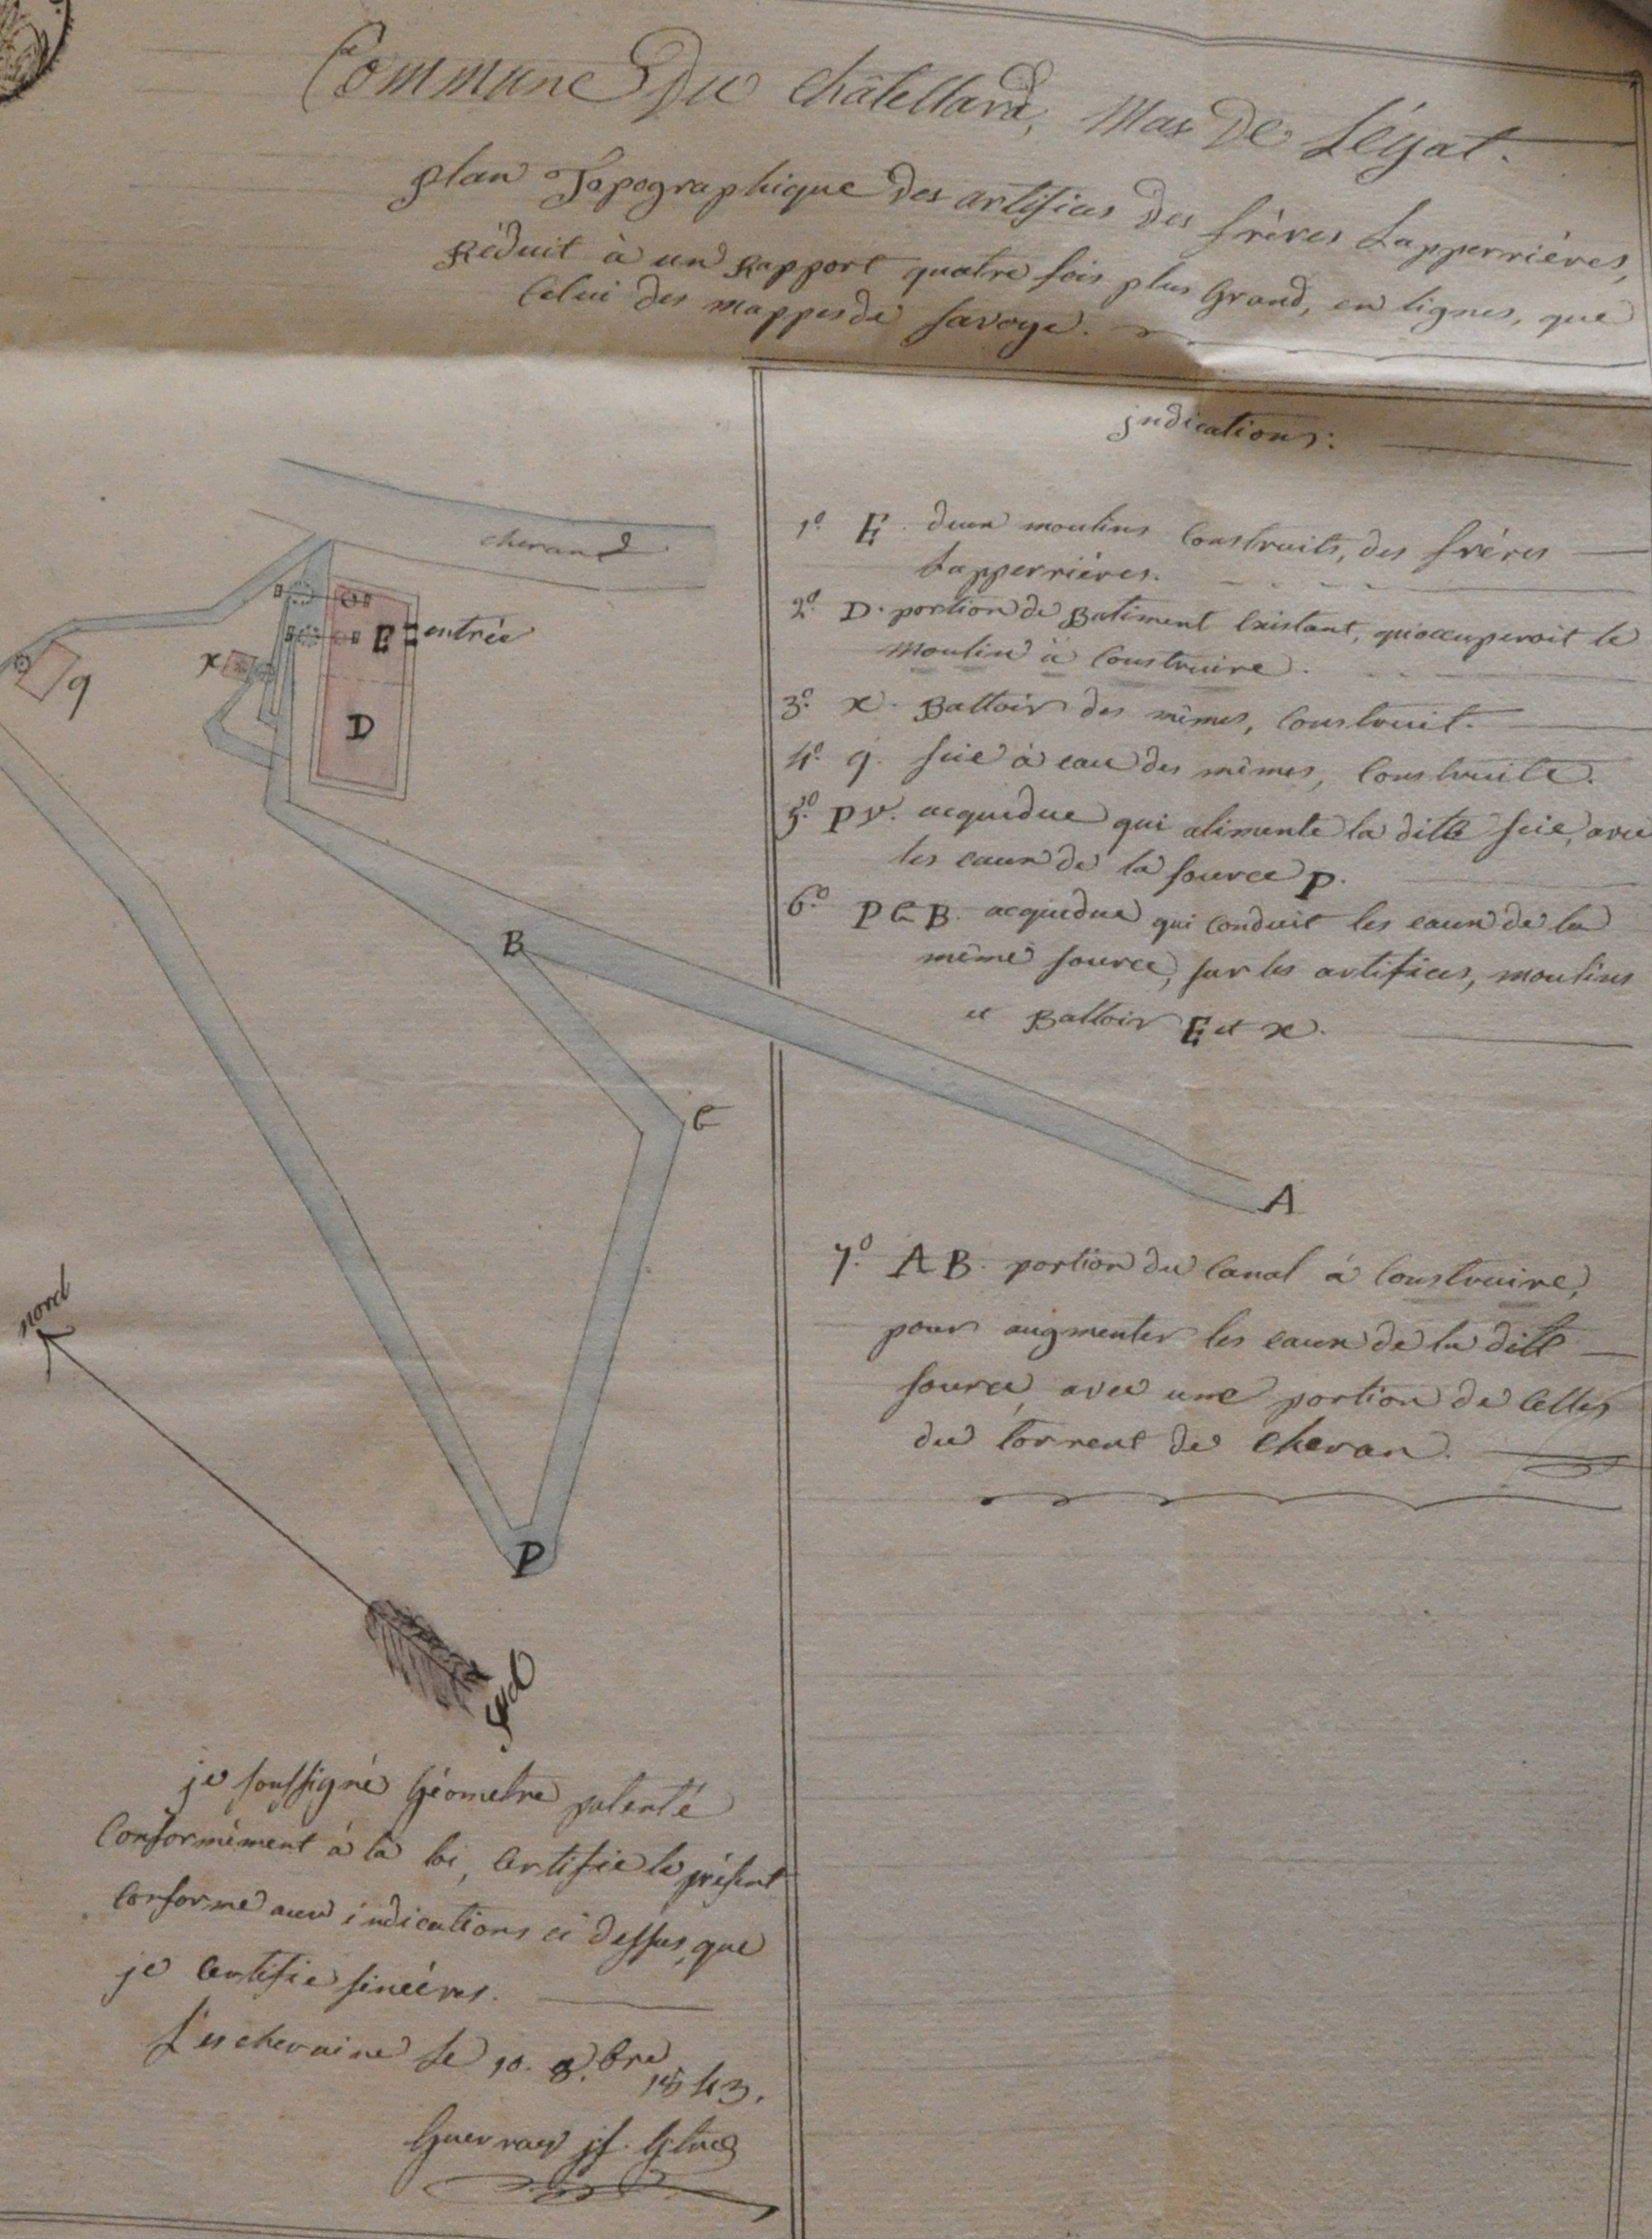 Commune Du Châtellard, Mas De Léyat.
plan Topographique des artifices des frères Lapperrières,
Réduit à un Rapport quatre fois plus Grand, en lignes, que
Celui des mappes de Savoye.
indications:
cherand
1.° E. deux moulins Construits, des frères
Lapperrières.
2.° D. portion de Batiment Existant, qu'occuperoit le
moulin à Construire.
3.° x. Battoir des mêmes, Construit.
4.° q. scie à eau des mêmes, Construite.
5.° P y. acquedue qui alimente la ditte scie, avec
les eaux de la source P.
6.° P C B. acquedue qui Conduit les eaux de la
même source, sur les artifices, moulins
et Battoir E et x.
E entrée
x
q
D
B
C
A
7.° A B. portion du Canal à Construire,
pour augmenter les eaux de la ditte
source, avec une portion de Celles
du torrent de Cheran.
nord
P
sud
je soussigné Géometre patenté
Conformément à la loi, Certifie le présent
Conforme aux indications ci dessus, que
je Certifie sincères.
Lescheraine le 10. 8.bre 1843.